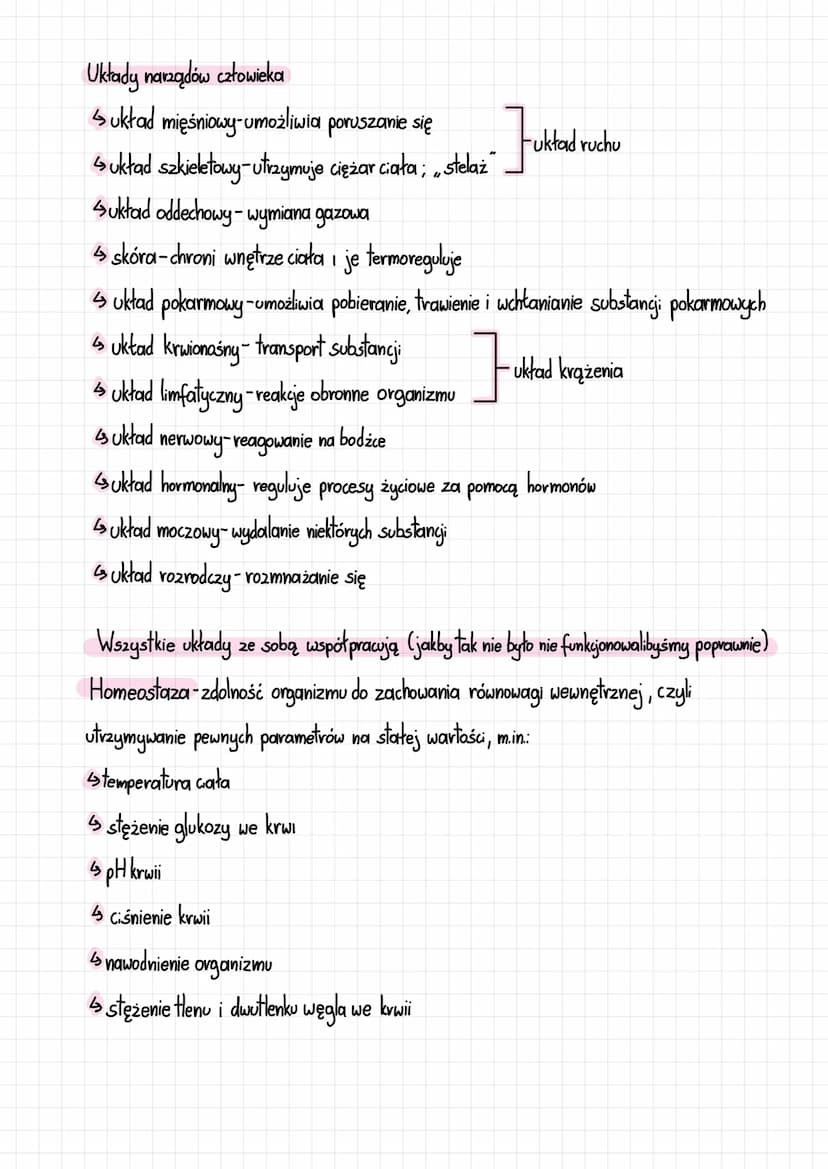 Układy narządów człowieka
↳ układ mięśniowy-umożliwia poruszanie się
↳ układ szkieletowy-utrzymuje ciężar ciała; „stelaż”
układ ruchu
↳ układ oddechowy-wymiana gazowa
↳ skóra-chroni wnętrze ciała i je termoreguluje
↳ układ pokarmowy-umożliwia pobieranie, trawienie i wchłanianie substancji pokarmowych
↳ układ krwionośny-transport substancji
↳ układ limfatyczny-reakcje obronne organizmu
układ krążenia
↳ układ nerwowy-reagowanie na bodźce
↳ układ hormonalny- reguluje procesy życiowe za pomocą hormonów
↳ układ moczowy-wydalanie niektórych substancji
↳ układ rozrodczy-rozmnażanie się
Wszystkie układy ze sobą współpracują (jakby tak nie było nie funkcjonowalibyśmy poprawnie)
Homeostaza-zdolność organizmu do zachowania równowagi wewnętrznej, czyli
utrzymywanie pewnych parametrów na stałej wartości, m.in.:
↳ temperatura ciała
↳ stężenie glukozy we krwi
↳ pH krwii
↳ ciśnienie krwii
↳ nawodnienie organizmu
↳ stężenie tlenu i dwutlenku węgla we krwii